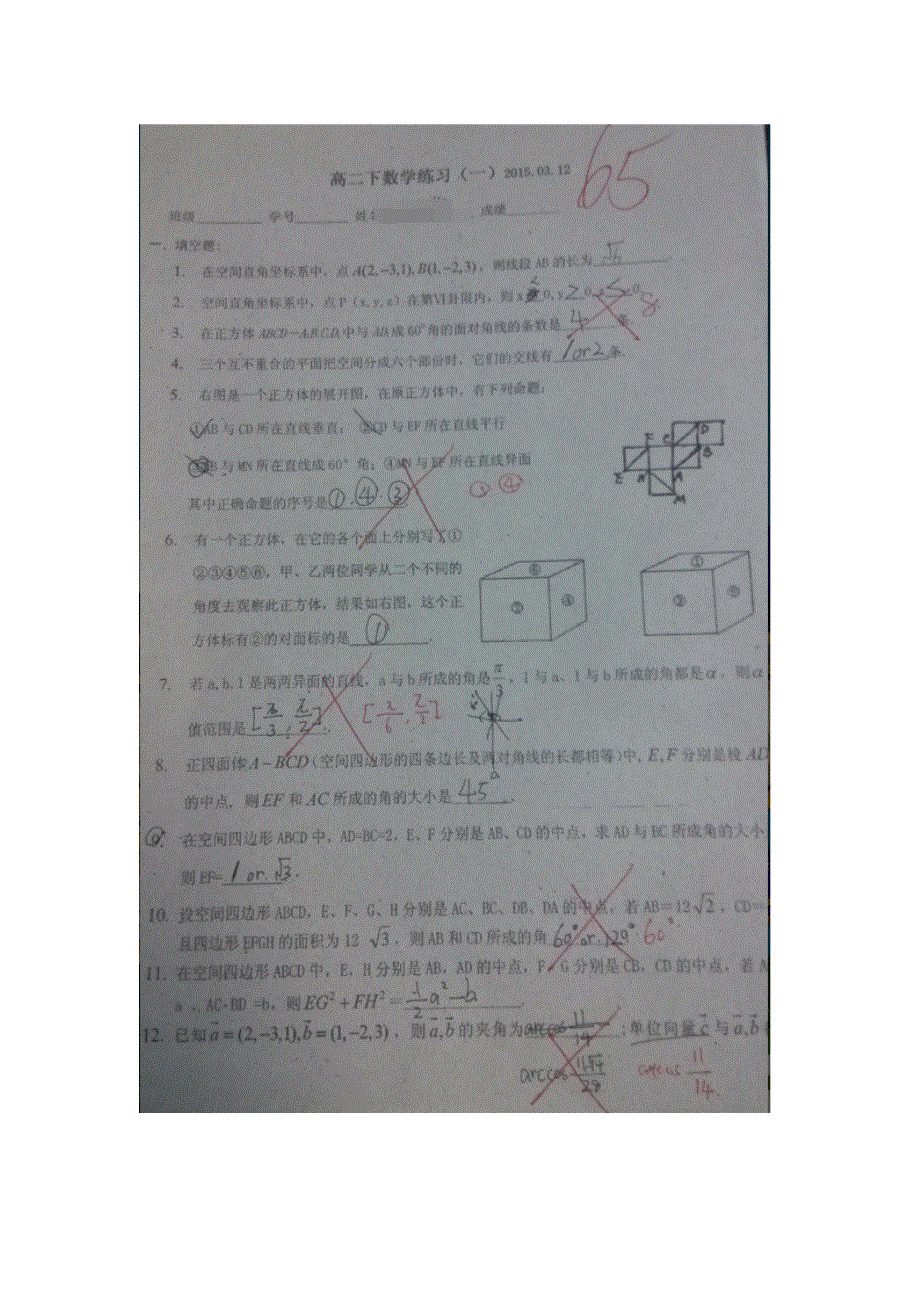 高二下数学练习（一）2015.03.12
65
班级 学号 姓 成绩
一、填空题：
1. 在空间直角坐标系中，点 A(2,−3,1), B(1,−2,3)，则线段 AB 的长为 √6
2. 空间直角坐标系中，点 P（x, y, z）在第Ⅵ卦限内，则 x 0, y ≥ 0,
3. 在正方体 ABCD 中与 成 60°角的面对角线的条数是 4 条 8
4. 三个互不重合的平面把空间分成六个部份时，它们的交线有 1 or 2 条.
5. 右图是一个正方体的展开图，在原正方体中，有下列命题：
①AB 与 CD 所在直线垂直； ②CD 与 EF 所在直线平行
③AB 与 MN 所在直线成 60° 角；④MN 与 EF 所在直线异面
其中正确命题的序号是 ① , ④ . ② ④
F C D B E N A M
6. 有一个正方体，在它的各个面上分别写了①
②③④⑤⑥，甲、乙两位同学从二个不同的
角度去观察此正方体，结果如右图，这个正
方体标有②的对面标的是 ① .
7. 若 a, b, l 是两两异面的直线，a 与 b 所成的角是 π/3 ，l 与 a、l 与 b 所成的角都是 α ，则 α
值范围是 [π/3 , π/2] . [π/6 , π/2]
8. 正四面体 A−BCD（空间四边形的四条边长及两对角线的长都相等）中, E, F 分别是棱 AD
的中点, 则 EF 和 AC 所成的角的大小是 45° .
9. 在空间四边形 ABCD 中，AD=BC=2，E、F 分别是 AB、CD 的中点，求 AD 与 BC 所成角的大小
则 EF= 1 or √3 .
10. 设空间四边形 ABCD，E、F、G、H 分别是 AC、BC、DB、DA 的中点，若 AB＝12√2 ，CD＝
且四边形 EFGH 的面积为 12 √3 ，则 AB 和 CD 所成的角 60° or 120° 60°
11. 在空间四边形 ABCD 中，E，H 分别是 AB，AD 的中点，F，G 分别是 CB，CD 的中点，若 A
a ，AC·BD =b，则 EG² + FH² = 1/2 a² − b .
12. 已知 a = (2,−3,1), b = (1,−2,3) ，则 a, b 的夹角为 arccos 11/14 ；单位向量 c 与 a, b
arccos arccos 11/14